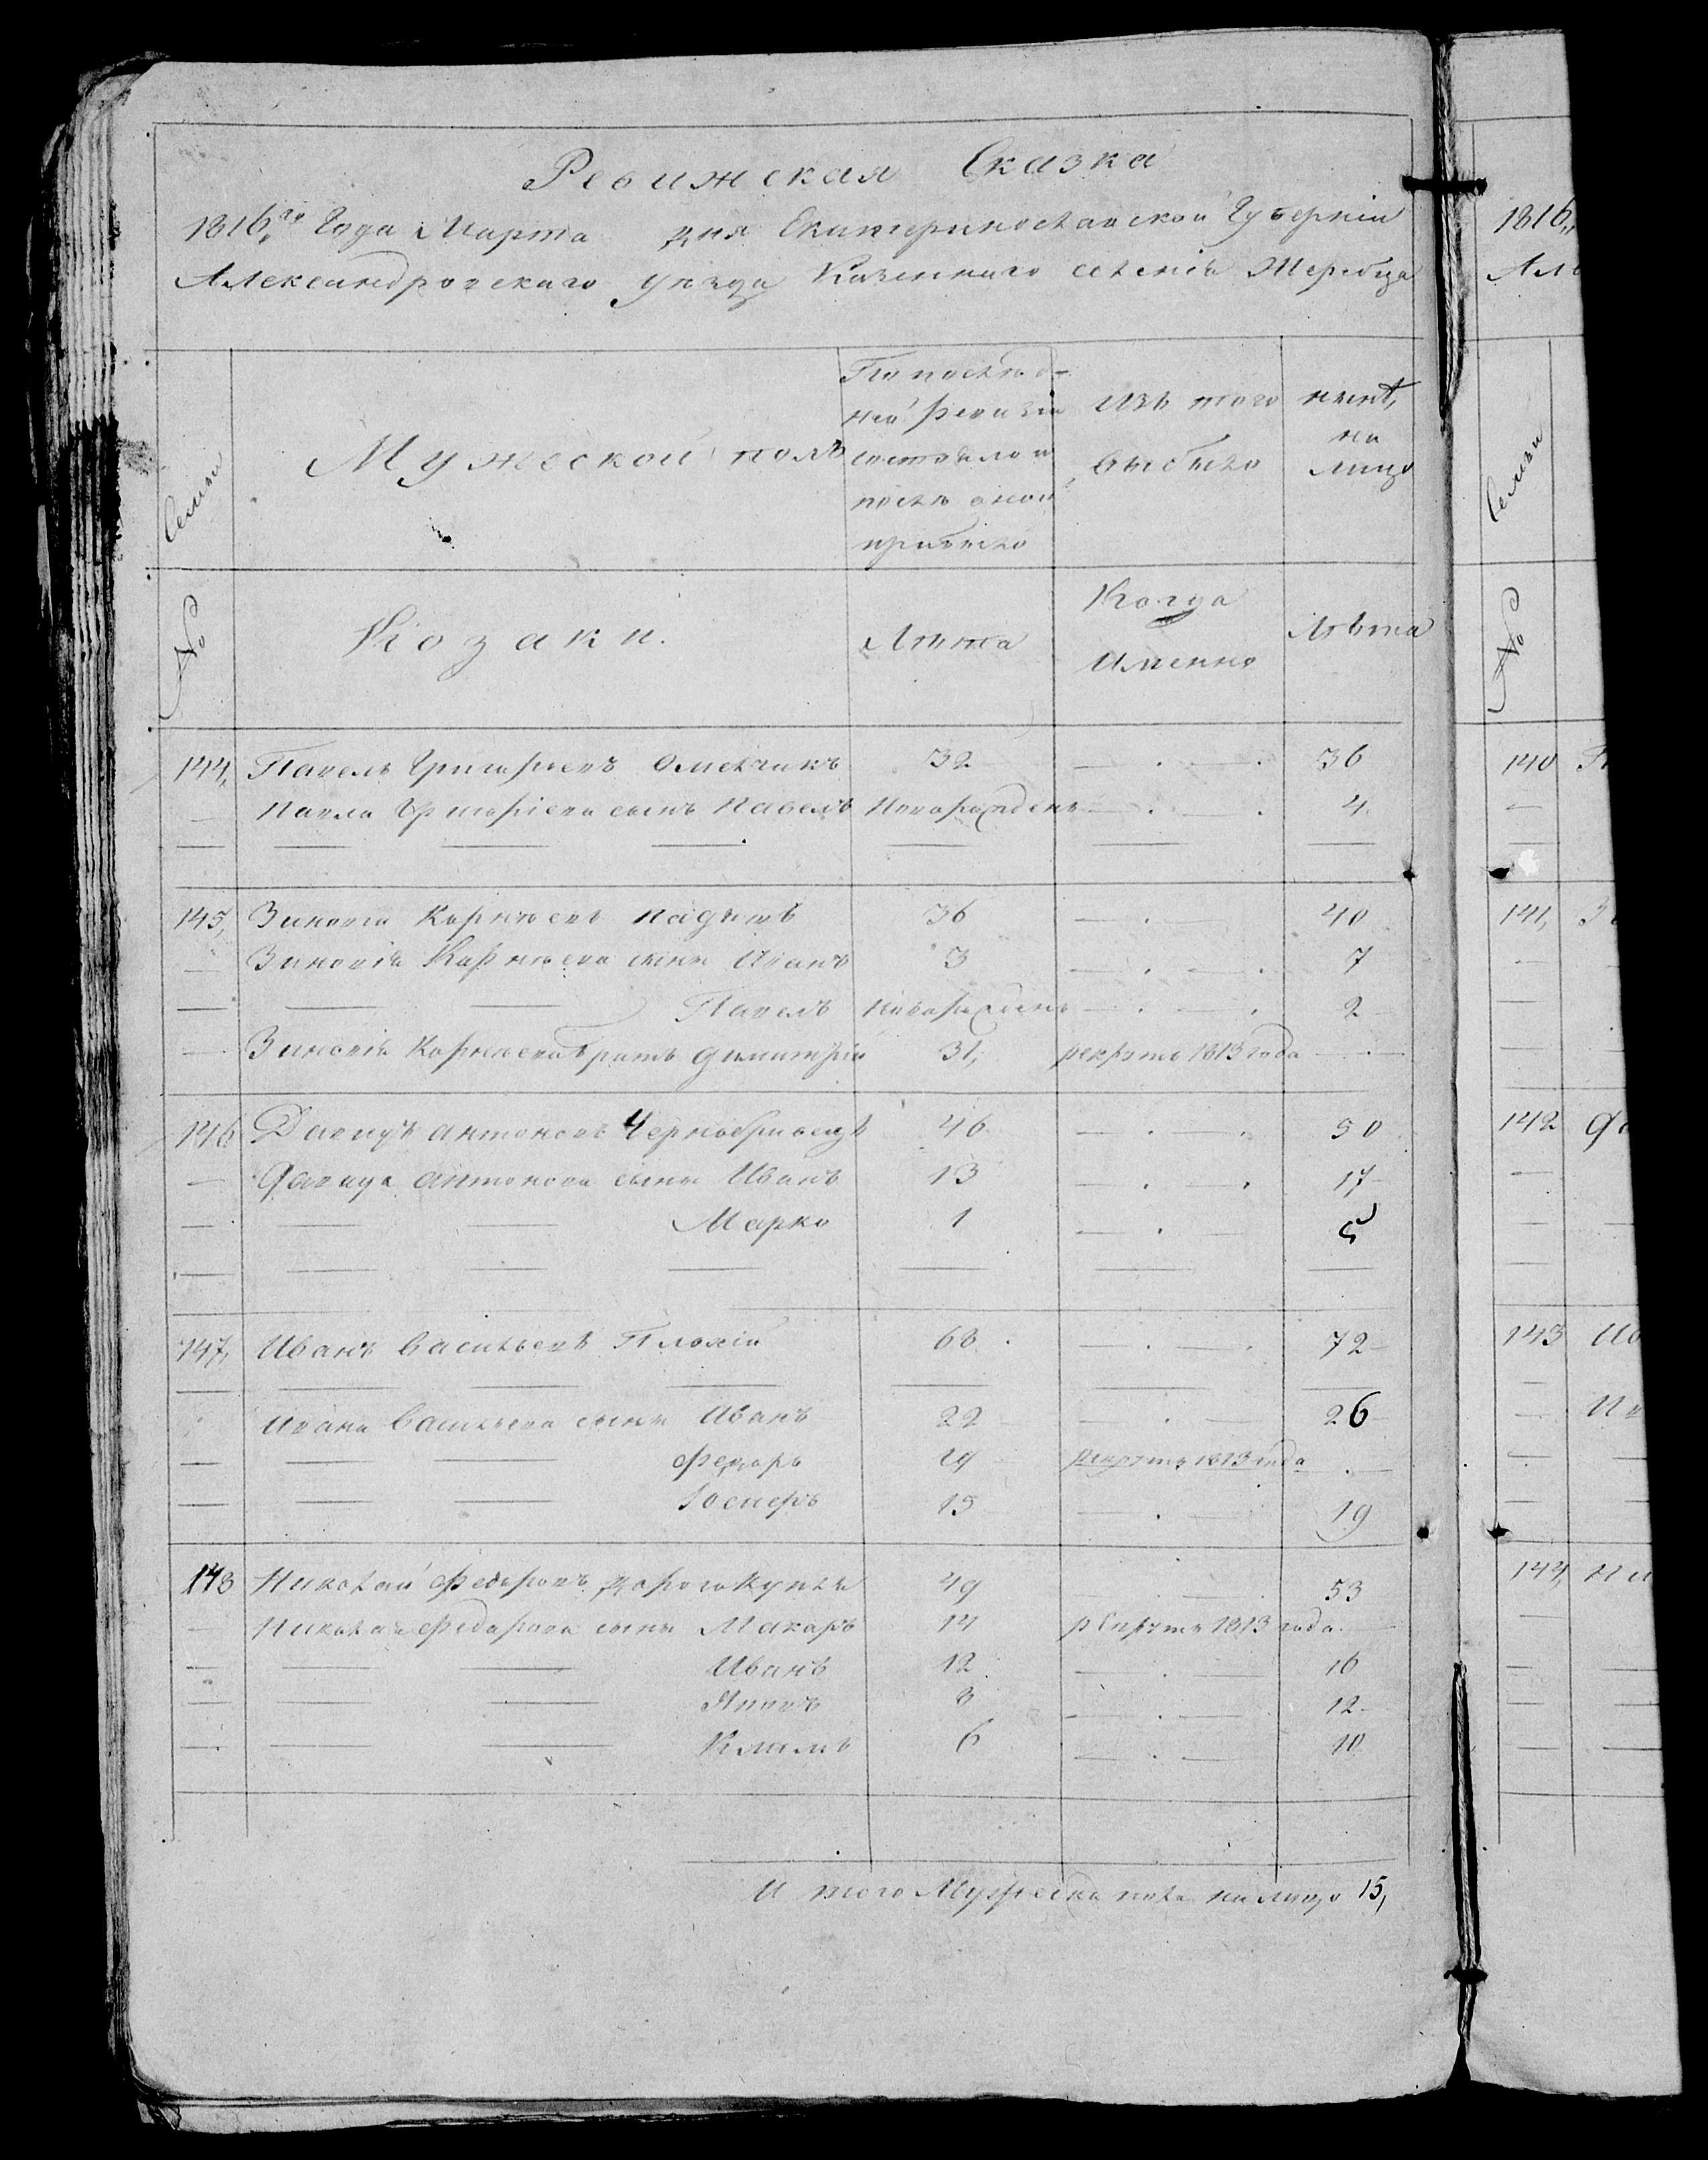 Ревижская Сказка
1816,го Года Марта дня Екатеринославской Губерніи
Александровскаго уезда Казеннаго селенія Жеребца
Семьи
Мужеской полъ
По послед-
ней ревизіи
состояло и
после оной
прибыло
Изъ того
выбыло
ныне,
на
лицо
№
Козаки.
Лета
Когда
Имянно
Лѣта
144, Павелъ Григорьевъ 32 — . — . 36
— Павла Григоріева сынъ Павелъ Новорожденъ — . — . 4
145, Зиновій Корнѣевъ 36 — . — 40
— Зиновія Корнѣева сыны Иванъ 3 — . — . 7
— — — Павелъ Новорожденъ — . — . 2
— Зиновія Корнѣева братъ Димитрій 31, рекрутъ 1813 года — . —
146 Давидъ Антоновъ Чернобривецъ 46 — . — . 50
— Давида Антонова сыны Иванъ 13 — . — . 17
— — — Марко 1 — . — 5
147, Иванъ Васильевъ Плохій 68 . — . — . 72
Ивана Васильева сыны Иванъ 22 — . — 26
— — — Федоръ 29 рекрутъ 1813 года — . —
— — — 15 — . — 19
148 Николай Федоровъ Дорогокупля 49 53
— Николая Федорова сыны Макаръ 14 рекрутъ 1813 года. —
— — — Иванъ 12 — . — 16
— — — Яковъ 8 — . — 12
— — — Климъ 6 — . — 10
И того Мужеска пола на лицо 15,
1816,,
Але
Семьи
№
140
141,
142 Да
143 Ив
144, Ни